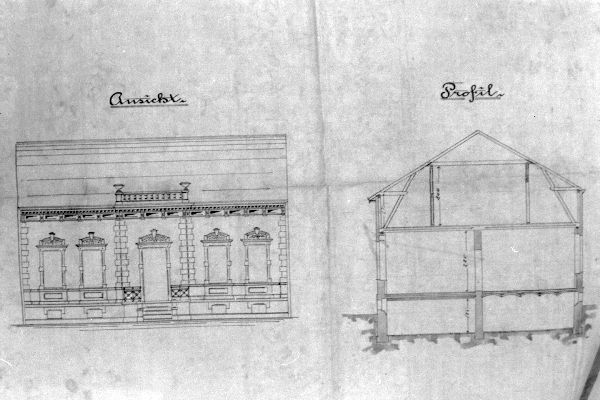 Ansicht.
Profil.